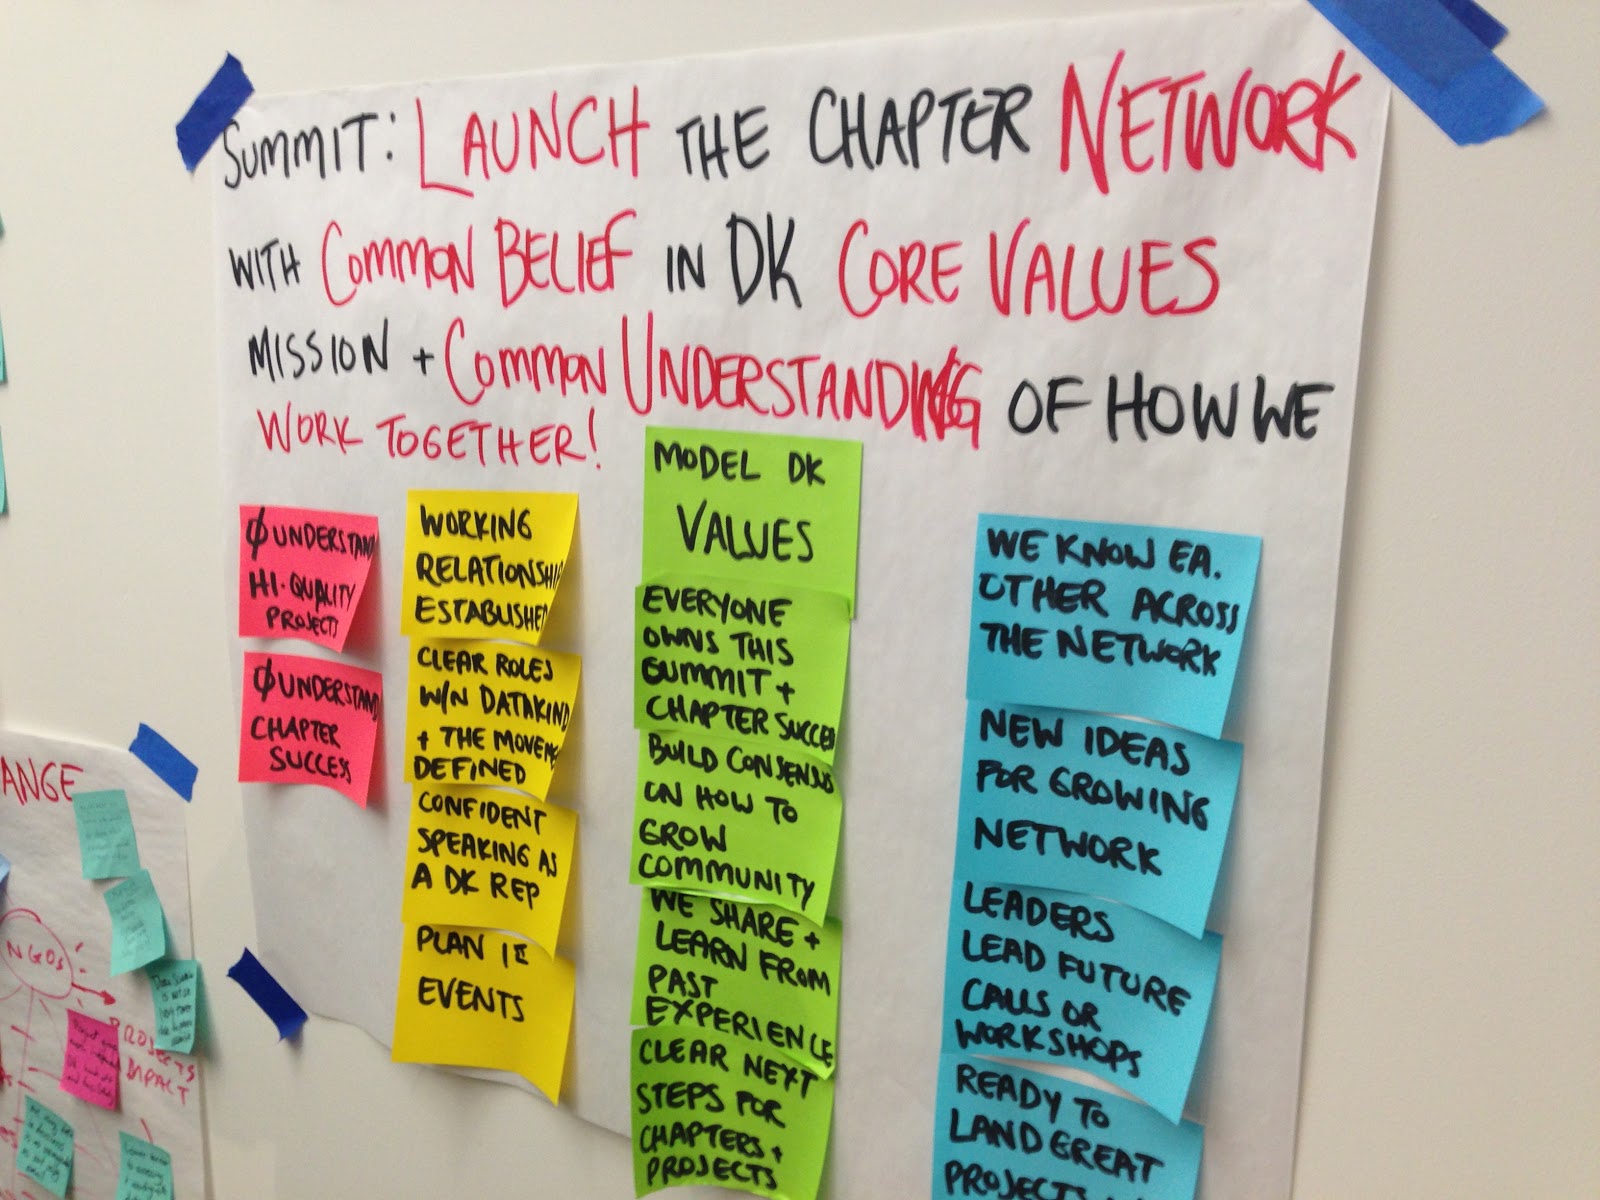 SUMMIT: LAUNCH THE CHAPTER NETWORK
WITH COMMON BELIEF IN DK CORE VALUES
MISSION + COMMON UNDERSTANDING OF HOW WE
WORK TOGETHER!
Ø UNDERSTAND
HI-QUALITY
PROJECTS
Ø UNDERSTAND
CHAPTER
SUCCESS
WORKING
RELATIONSHIP
ESTABLISHED
CLEAR ROLES
W/N DATAKIND
+ THE MOVEME
DEFINED
CONFIDENT
SPEAKING AS
A DK REP
PLAN
EVENTS
MODEL DK
VALUES
EVERYONE
OWNS THIS
SUMMIT +
CHAPTER SUCCESS
BUILD CONSENSUS
ON HOW TO
GROW
COMMUNITY
WE SHARE +
LEARN FROM
PAST
EXPERIENCE
CLEAR NEXT
STEPS FOR
CHAPTERS +
PROJECTS
WE KNOW EA.
OTHER ACROSS
THE NETWORK
NEW IDEAS
FOR GROWING
NETWORK
LEADERS
LEAD FUTURE
CALLS OR
WORKSHOPS
READY TO
LAND GREAT
PROJECTS
ANGE
NGOs
PROJECTS
IMPACT